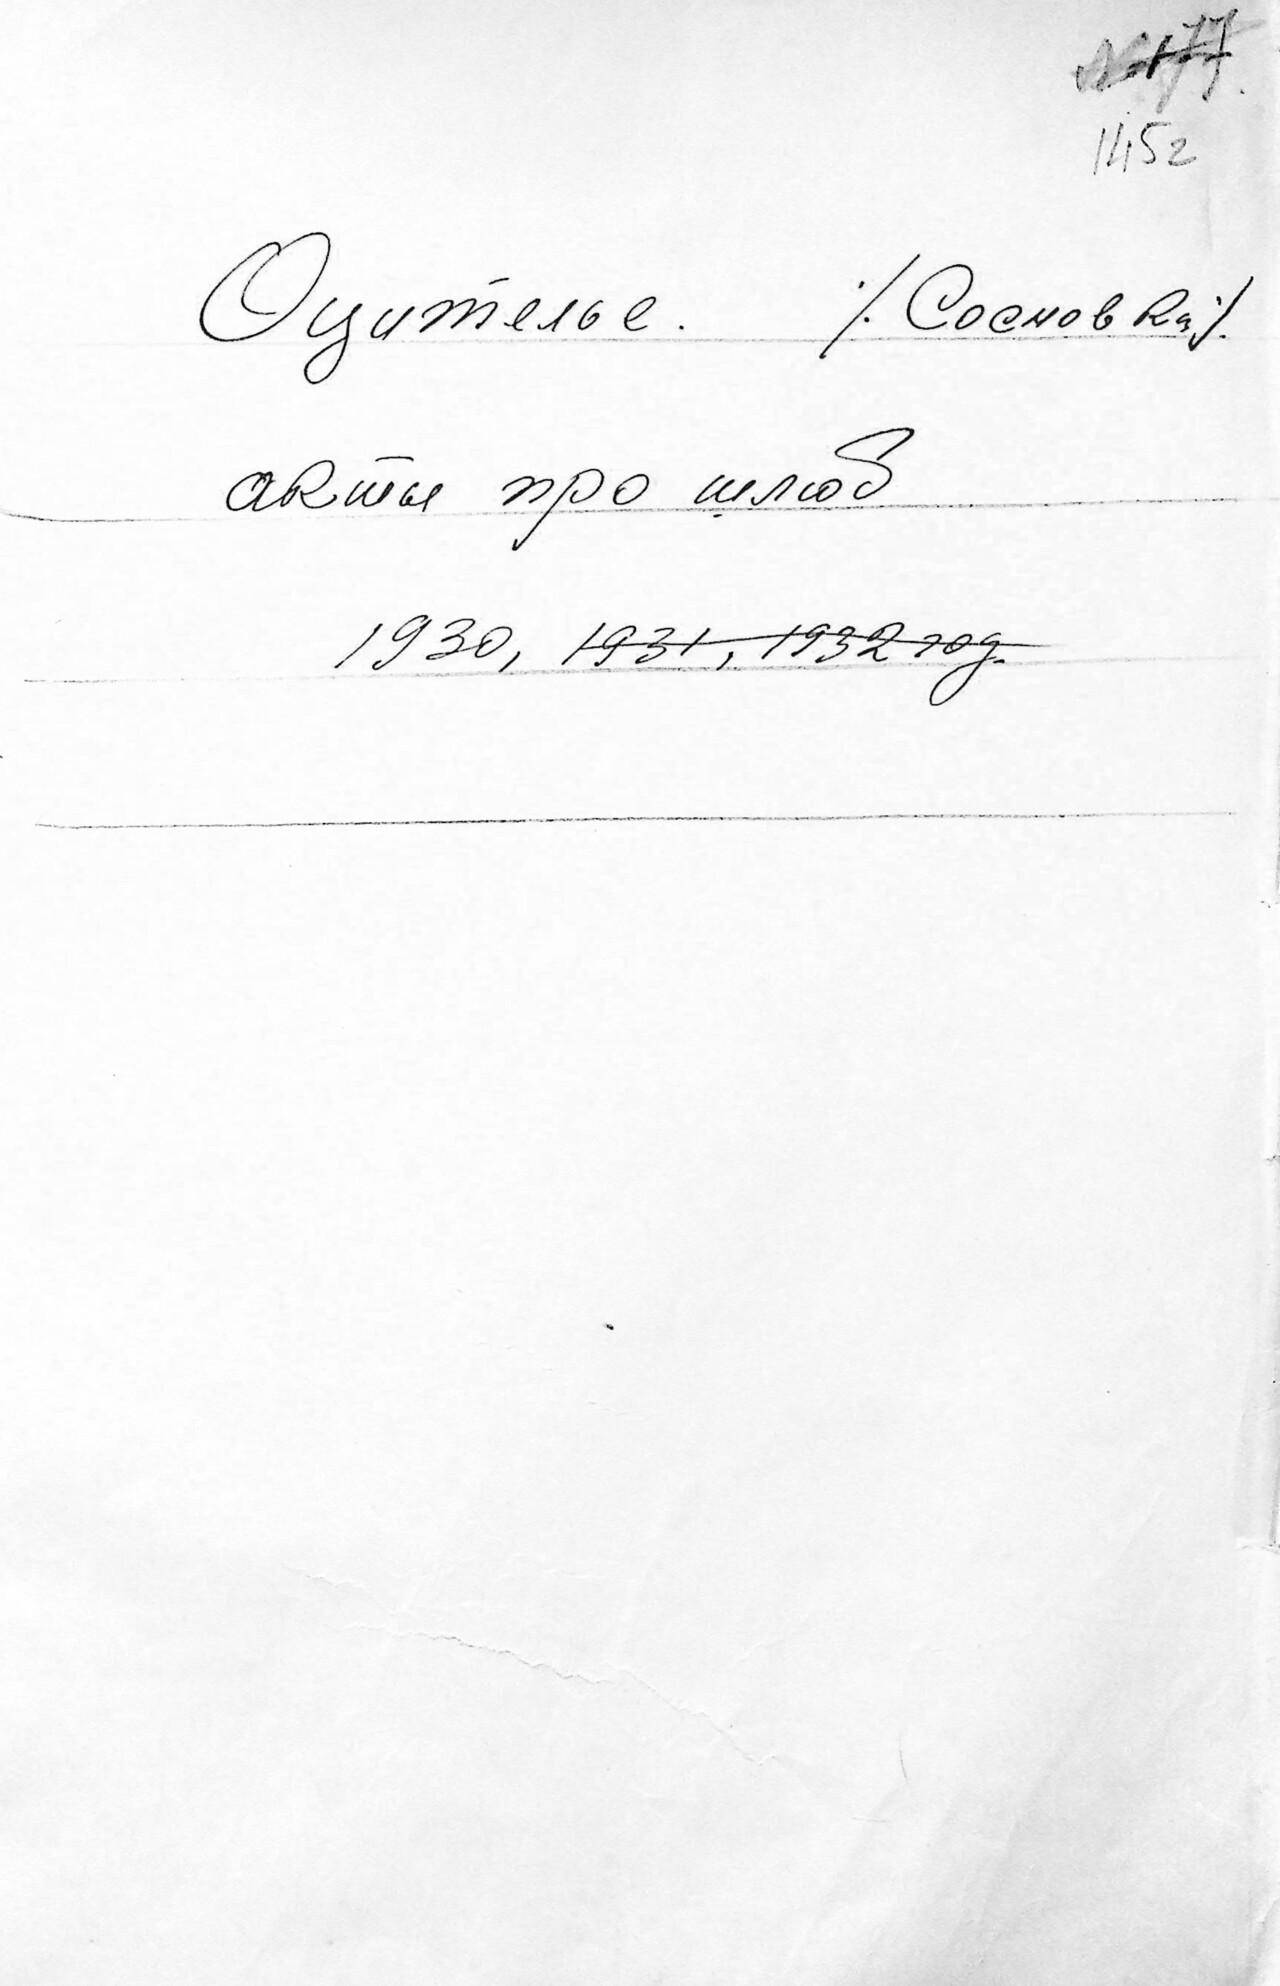 1452
Оцителье. /. Сосновка ./.
акты про шлюб
1930, 1931, 1932 год.